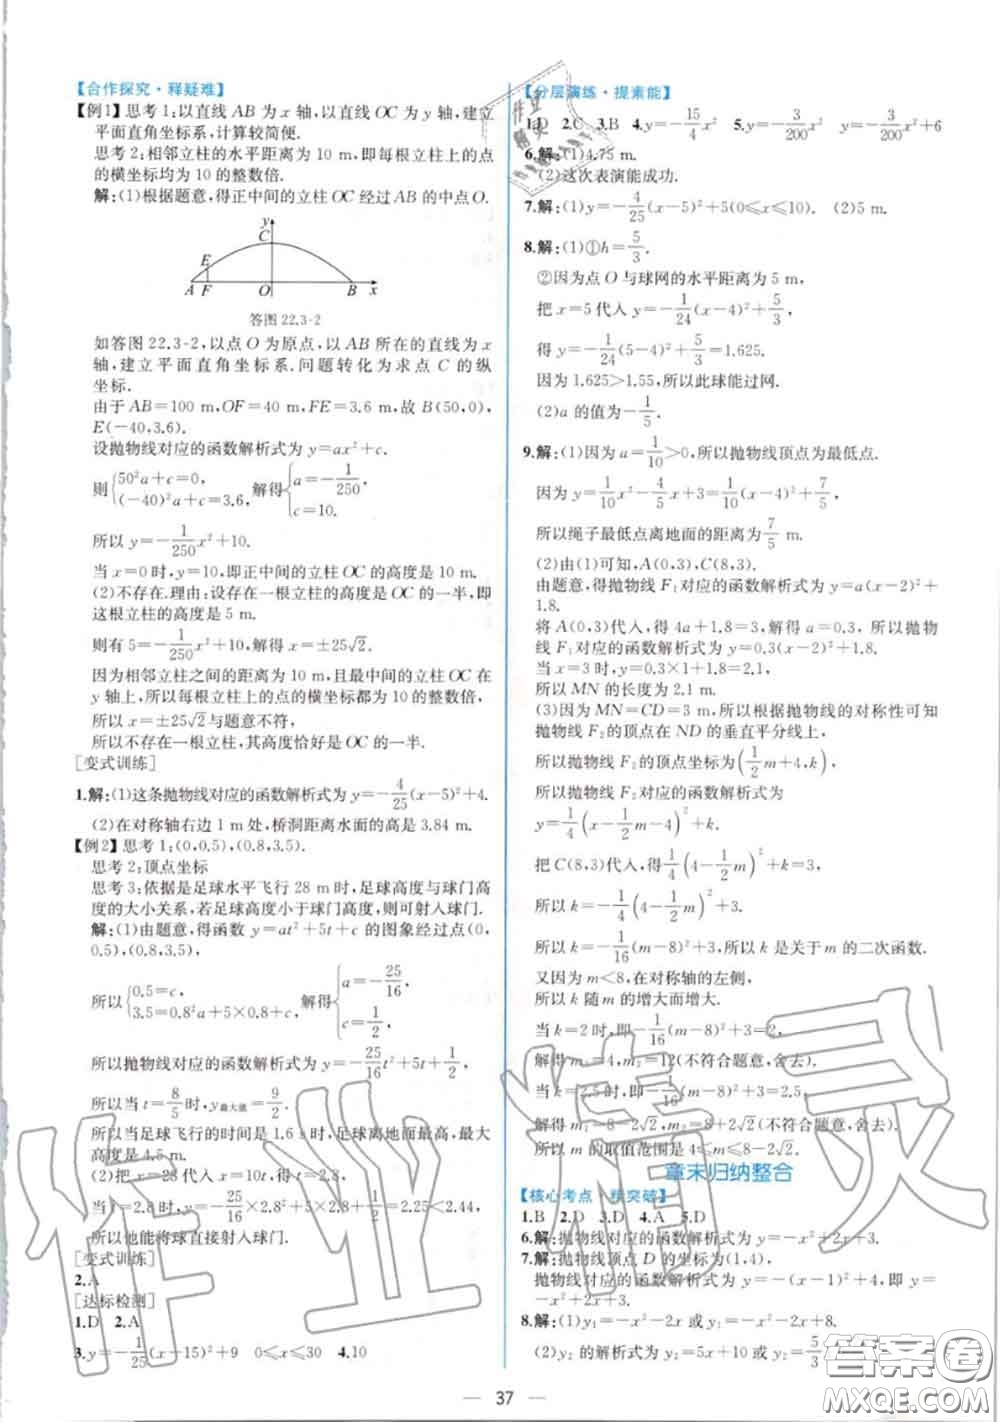 【合作探究·释疑难】
【例1】思考1:以直线AB为x轴,以直线OC为y轴,建立
平面直角坐标系,计算较简便.
思考2:相邻立柱的水平距离为10 m,即每根立柱上的点
的横坐标均为10的整数倍.
解:(1)根据题意,得正中间的立柱OC经过AB的中点O.
y
C
E
A F O B x
答图22.3-2
如答图22.3-2,以点O为原点,以AB所在的直线为x
轴,建立平面直角坐标系.问题转化为求点C的纵
坐标.
由于AB=100 m,OF=40 m,FE=3.6 m,故B(50,0),
E(-40,3.6).
设抛物线对应的函数解析式为y=ax²+c.
则{50²a+c=0, (-40)²a+c=3.6, 解得{a=-1/250, c=10.
所以y=-1/250x²+10.
当x=0时,y=10,即正中间的立柱OC的高度是10 m.
(2)不存在.理由:设存在一根立柱的高度是OC的一半,即
这根立柱的高度是5 m.
则有5=-1/250x²+10,解得x=±25√2.
因为相邻立柱之间的距离为10 m,且最中间的立柱OC在
y轴上,所以每根立柱上的点的横坐标都为10的整数倍,
所以x=±25√2与题意不符,
所以不存在一根立柱,其高度恰好是OC的一半.
[变式训练]
1.解:(1)这条抛物线对应的函数解析式为y=-4/25(x-5)²+4.
(2)在对称轴右边1 m处,桥洞距离水面的高是3.84 m.
【例2】思考1:(0,0.5),(0.8,3.5).
思考2:顶点坐标
思考3:依据是足球水平飞行28 m时,足球高度与球门高度
的大小关系,若足球高度小于球门高度,则可射入球门.
解:(1)由题意,得函数y=at²+5t+c的图象经过点(0,
0.5),(0.8,3.5),
所以{0.5=c, 3.5=0.8²a+5×0.8+c, 解得{a=-25/16, c=1/2,
所以抛物线对应的函数解析式为y=-25/16t²+5t+1/2,
所以当t=8/5时,y最大值=9/2.
所以当足球飞行的时间是1.6 s时,足球离地面最高,最大
高度是4.5 m.
(2)把x=28代入x=10t,得t=2.8,
当t=2.8时,y=-25/16×2.8²+5×2.8+1/2=2.25<2.44,
所以他能将球直接射入球门.
[变式训练]
2.A
[达标检测]
1.D 2.A
3.y=-1/25(x-15)²+9 0≤x≤30 4.10
【分层演练·提素能】
1.D 2.C 3.B 4.y=-15/4x² 5.y=-3/200x² y=-3/200x²+6
6.解:(1)4.75 m.
(2)这次表演能成功.
7.解:(1)y=-4/25(x-5)²+5(0≤x≤10). (2)5 m.
8.解:(1)①h=5/3.
②因为点O与球网的水平距离为5 m,
把x=5代入y=-1/24(x-4)²+5/3,
得y=-1/24(5-4)²+5/3=1.625.
因为1.625>1.55,所以此球能过网.
(2)a的值为-1/5.
9.解:(1)因为a=1/10>0,所以抛物线顶点为最低点.
因为y=1/10x²-4/5x+3=1/10(x-4)²+7/5,
所以绳子最低点离地面的距离为7/5 m.
(2)由(1)可知,A(0,3),C(8,3).
由题意,得抛物线F₁对应的函数解析式为y=a(x-2)²+
1.8.
将A(0,3)代入,得4a+1.8=3,解得a=0.3,所以抛物
线F₁对应的函数解析式为y=0.3(x-2)²+1.8.
当x=3时,y=0.3×1+1.8=2.1,
所以MN的长度为2.1 m.
(3)因为MN=CD=3 m,所以根据抛物线的对称性可知
抛物线F₂的顶点在ND的垂直平分线上,
所以抛物线F₂的顶点坐标为(1/2m+4,k),
所以抛物线F₂对应的函数解析式为
y=1/4(x-1/2m-4)²+k.
把C(8,3)代入,得1/4(4-1/2m)²+k=3,
所以k=-1/4(4-1/2m)²+3.
所以k=-1/16(m-8)²+3,所以k是关于m的二次函数.
又因为m<8,在对称轴的左侧,
所以k随m的增大而增大.
当k=2时,即-1/16(m-8)²+3=2,
解得m₁=4,m₂=12(不符合题意,舍去).
当k=2.5时,即-1/16(m-8)²+3=2.5,
解得m₁=8-2√2,m₂=8+2√2(不符合题意,舍去).
所以m的取值范围是4≤m≤8-2√2.
章末归纳整合
【核心考点·精突破】
1.B 2.D 3.D 4.A 5.D
6.解:抛物线对应的函数解析式为y=-x²+2x+3.
7.解:抛物线顶点D的坐标为(1,4),
抛物线对应的函数解析式为y=-(x-1)²+4,即y=
-x²+2x+3.
8.解:(1)y₁=-x²-2x或y₁=-x²-2x+8.
(2)y₂的解析式为y₂=5x+10或y₂=5/3
37
作业精灵
答案圈
MXQE.COM